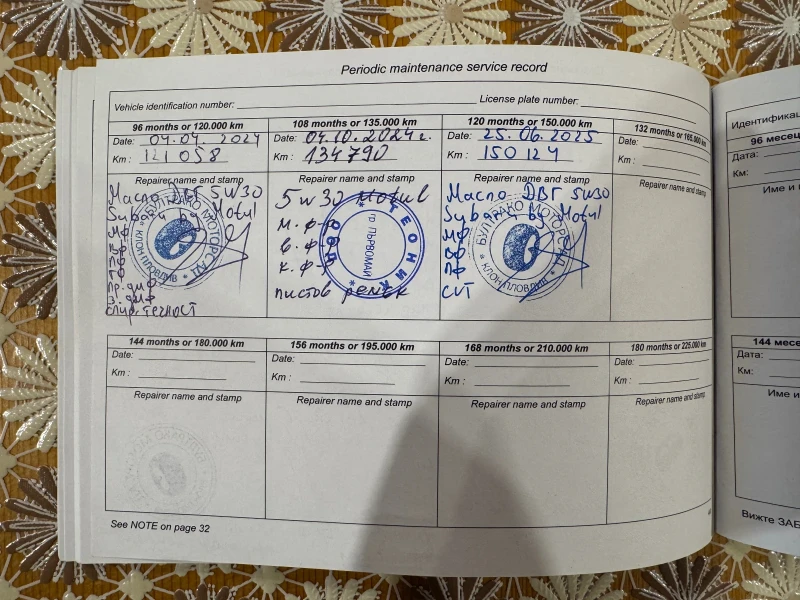 Periodic maintenance service record
Vehicle identification number:
License plate number:
96 months or 120.000 km
Date: 04.04.2024
Km: 121058
Repairer name and stamp
Масло ДВГ 5W30
Subaru by Motul
МФ
ВФ
ПФ
ГФ
Пр. диф
З. диф
спир. течност
БУЛТРАКО МОТОРС АД
КЛОН ПЛОВДИВ
108 months or 135.000 km
Date: 04.10.2024г.
Km: 134790
Repairer name and stamp
5w30 motul
м. ф-р
в. ф-р
к. ф-р
пистов ремък
гр. ПЪРВОМАЙ
120 months or 150.000 km
Date: 25.06.2025
Km: 150124
Repairer name and stamp
Масло ДВГ 5W30
Subaru by Motul
МФ
ВФ
ПФ
CVT
БУЛТРАКО МОТОРС
КЛОН ПЛОВДИВ
132 months or 165.000 km
Date:
Km:
Repairer name and stamp
144 months or 180.000 km
Date:
Km:
Repairer name and stamp
156 months or 195.000 km
Date:
Km:
Repairer name and stamp
168 months or 210.000 km
Date:
Km:
Repairer name and stamp
180 months or 225.000 km
Date:
Km:
Repairer name and stamp
See NOTE on page 32
Идентификац
96 месец
Дата:
Км:
Име и
144 месе
Дата:
Км:
Име и
Вижте ЗАБ